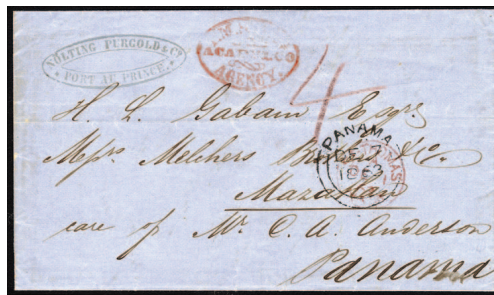 NÖLTING PURGOLD & Co
PORT AU PRINCE.
ACAPULCO
AGENCY.
4
H. L. Gabain Esqre.
Messrs Melchers &Co.
PANAMA
DE
1863
Mazatlan
care of Mr. C. A. Anderson
Panama